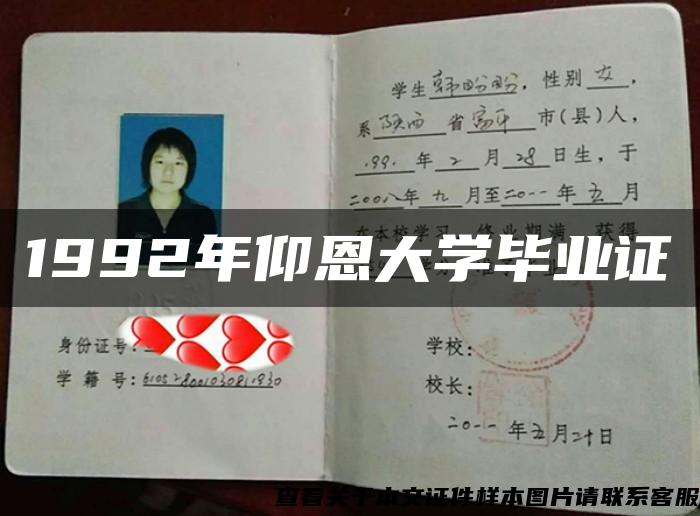 学生韩盼盼，性别女，
系陕西省富平市(县)人，
199.年2月28日生，于
二00八年九月至二0一一年五月
在本校学习 修业期满 获得
1992年仰恩大学毕业证
身份证号:
学籍号:610528001030811930
学校:
校长:
二0一一年五月二十日
查看关于本文证件样本图片请联系客服